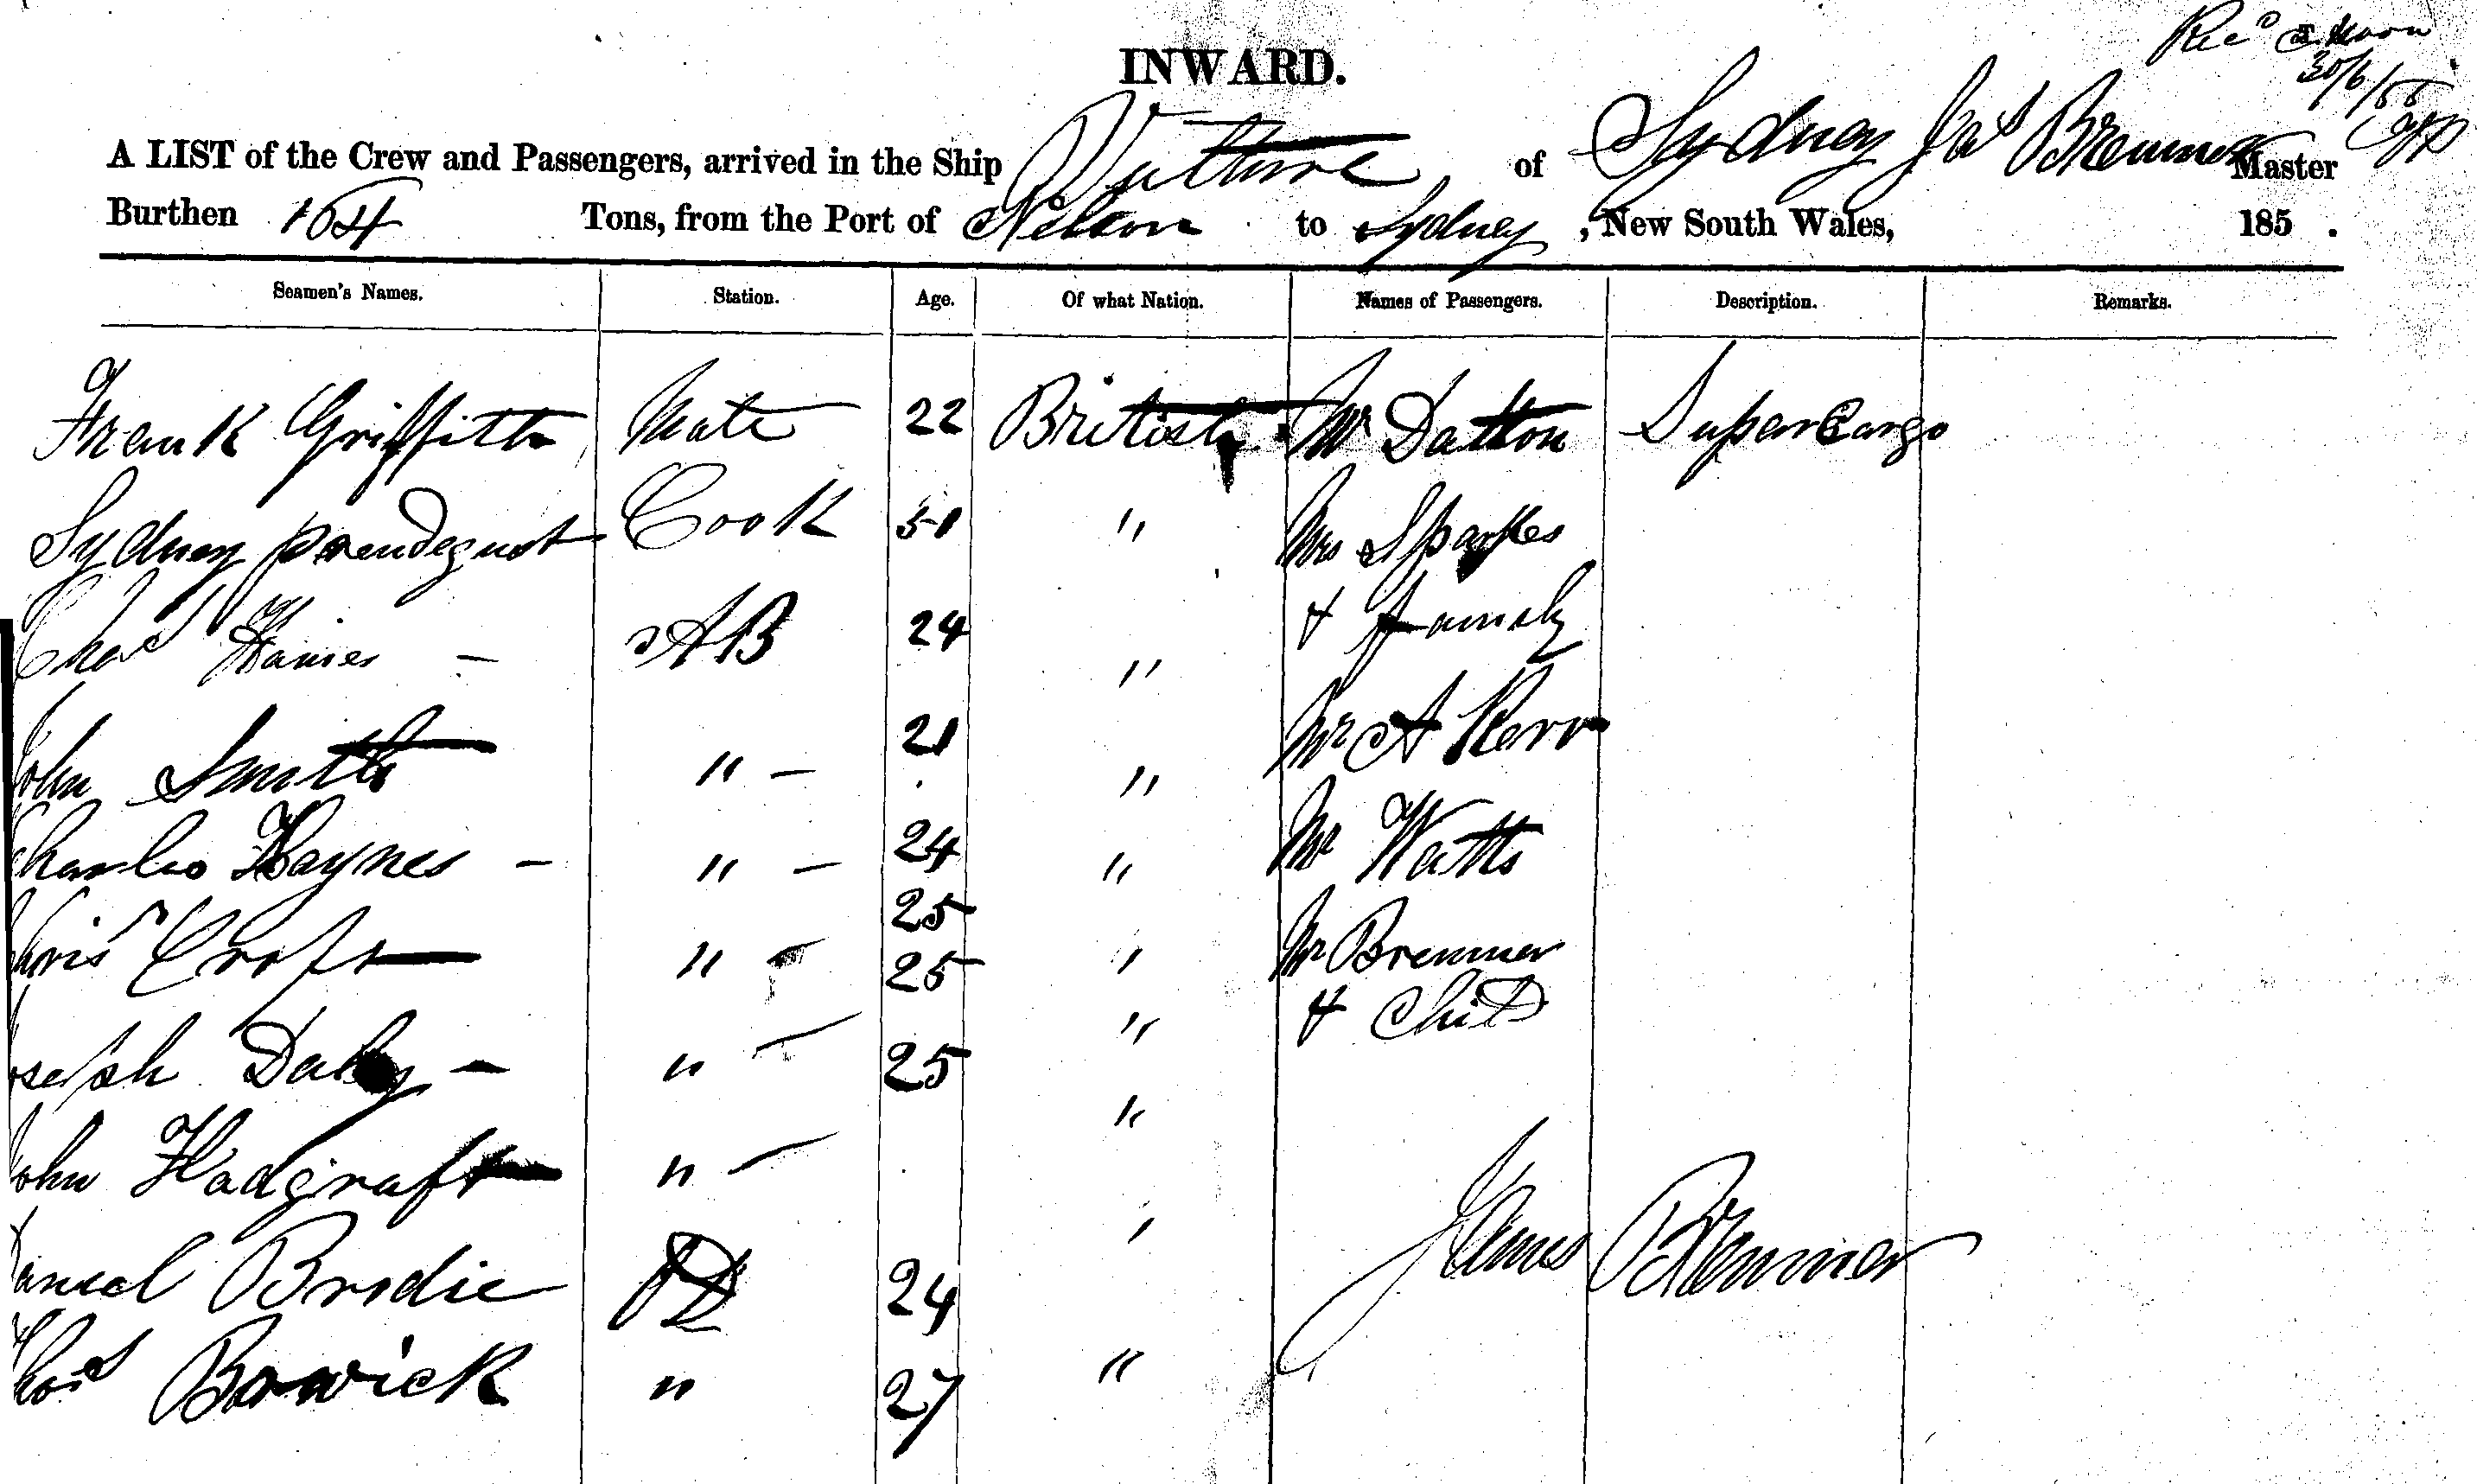 Rec^d
30/6/55
INWARD.
A LIST of the Crew and Passengers, arrived in the Ship Vulture of Sydney Ja^s Bremner Master
Burthen 164 Tons, from the Port of Nelson to Sydney, New South Wales, 185 .
Seamen's Names. Station. Age. Of what Nation. Names of Passengers. Description. Remarks.
Frank Griffith Mate 22 British Mr Datton SuperCargo
Sydney Prendegust Cook 51 " Mrs Sparkes
Cha^s Haines – AB 24 " & Family
John Smith " – 21 " Mr A Kerr
Charles Haynes – " – 24 " Mr Watts
Chris^r Croft " – 25 " Mr Bremner
25 & Child
Joseph Daley – " – 25 "
John Hadgraft " – "
Daniel Brodie 24 " James Bremner
Tho^s Borwick " 27 "